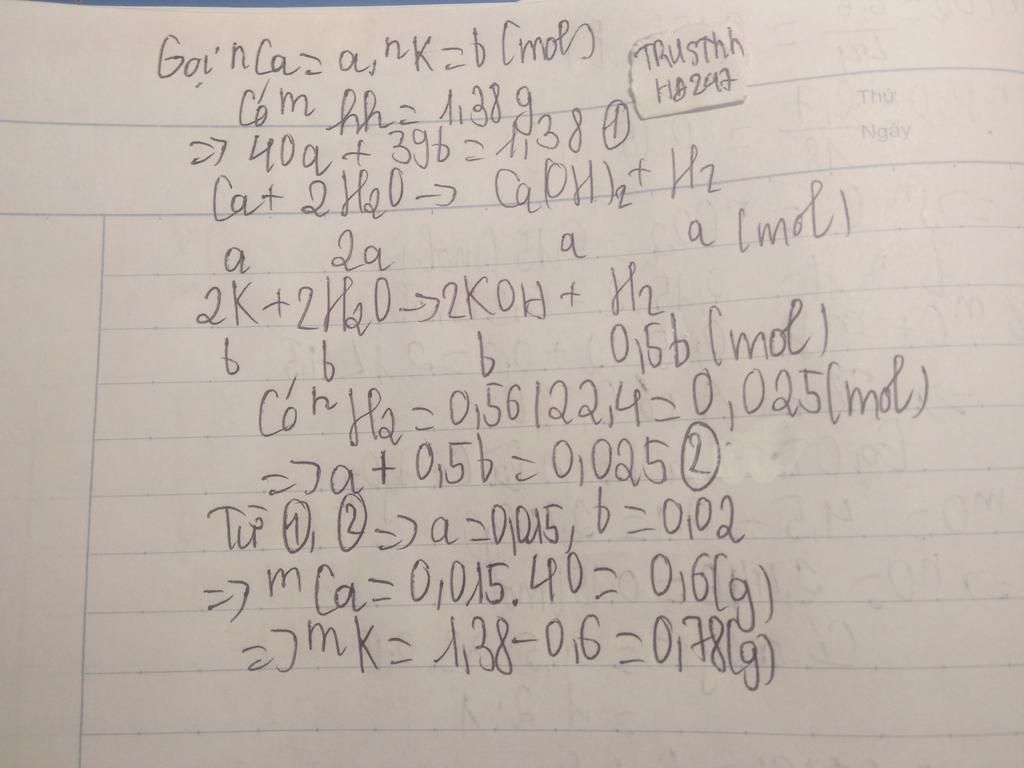 Gọi nCa = a, nK = b (mol)
TRUSThh
HB247
Có m hh = 1,38g
=> 40a + 39b = 1,38 ①
Thứ
Ngày
Ca + 2H2O -> Ca(OH)2 + H2
a 2a a a (mol)
2K + 2H2O -> 2KOH + H2
b b b 0,5b (mol)
Có nH2 = 0,56/22,4 = 0,025 (mol)
=> a + 0,5b = 0,025 ②
Từ ①, ② => a = 0,015, b = 0,02
=> mCa = 0,015.40 = 0,6(g)
=> mK = 1,38 - 0,6 = 0,78(g)